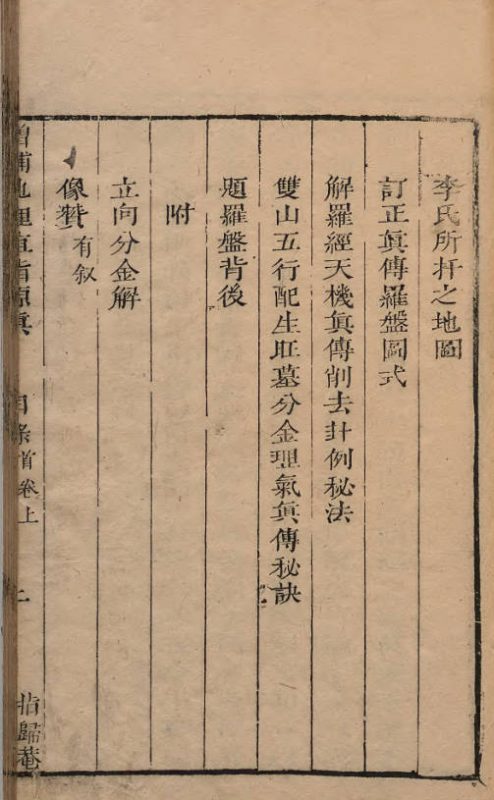 李氏所扦之地圖
訂正眞傳羅盤圖式
解羅經天機眞傳削去卦例秘法
雙山五行配生旺墓分金理氣眞傳秘訣
題羅盤背後
附
立向分金解
像贊有叙
地理直指原眞 目条首卷上 二 指歸菴